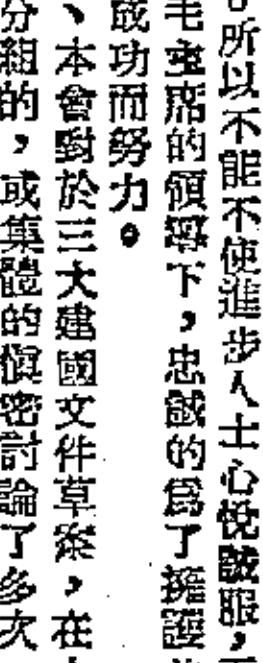 。所以不能不使進步人士心悅誠服,
毛主席的領導下,忠誠的爲了擁護
成功而努力。
、本會對於三大建國文件草案,在
分組的,或集體的愼密討論了多次